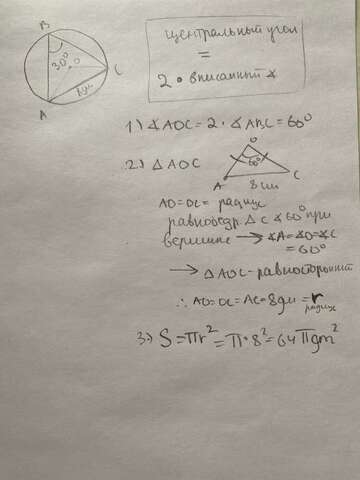 B
30°
O
C
A
8дм
центральный угол
=
2 • вписанный ∡
1.) ∡AOC = 2 · ∡ABC = 60°
2.) △AOC
O
60°
A
C
8 см
AO = OC = радиус
равнобедр. △ с ∡60° при
вершине → ∡A=∡O=∡C
= 60°
→ △AOC - равносторонний
∴ AO = OC = AC = 8дм = r
радиус
3.) S = πr² = π • 8² = 64 π дм²